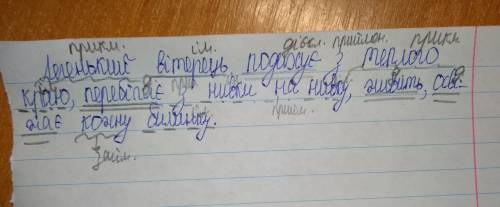 прикм. ім. дієсл. прийм. прикм.
Легенький вітерець подорожує з теплого
краю, перевіває з нивки на нивку, живить, осві-
жає кожну билинку.
прийм.
Займ.